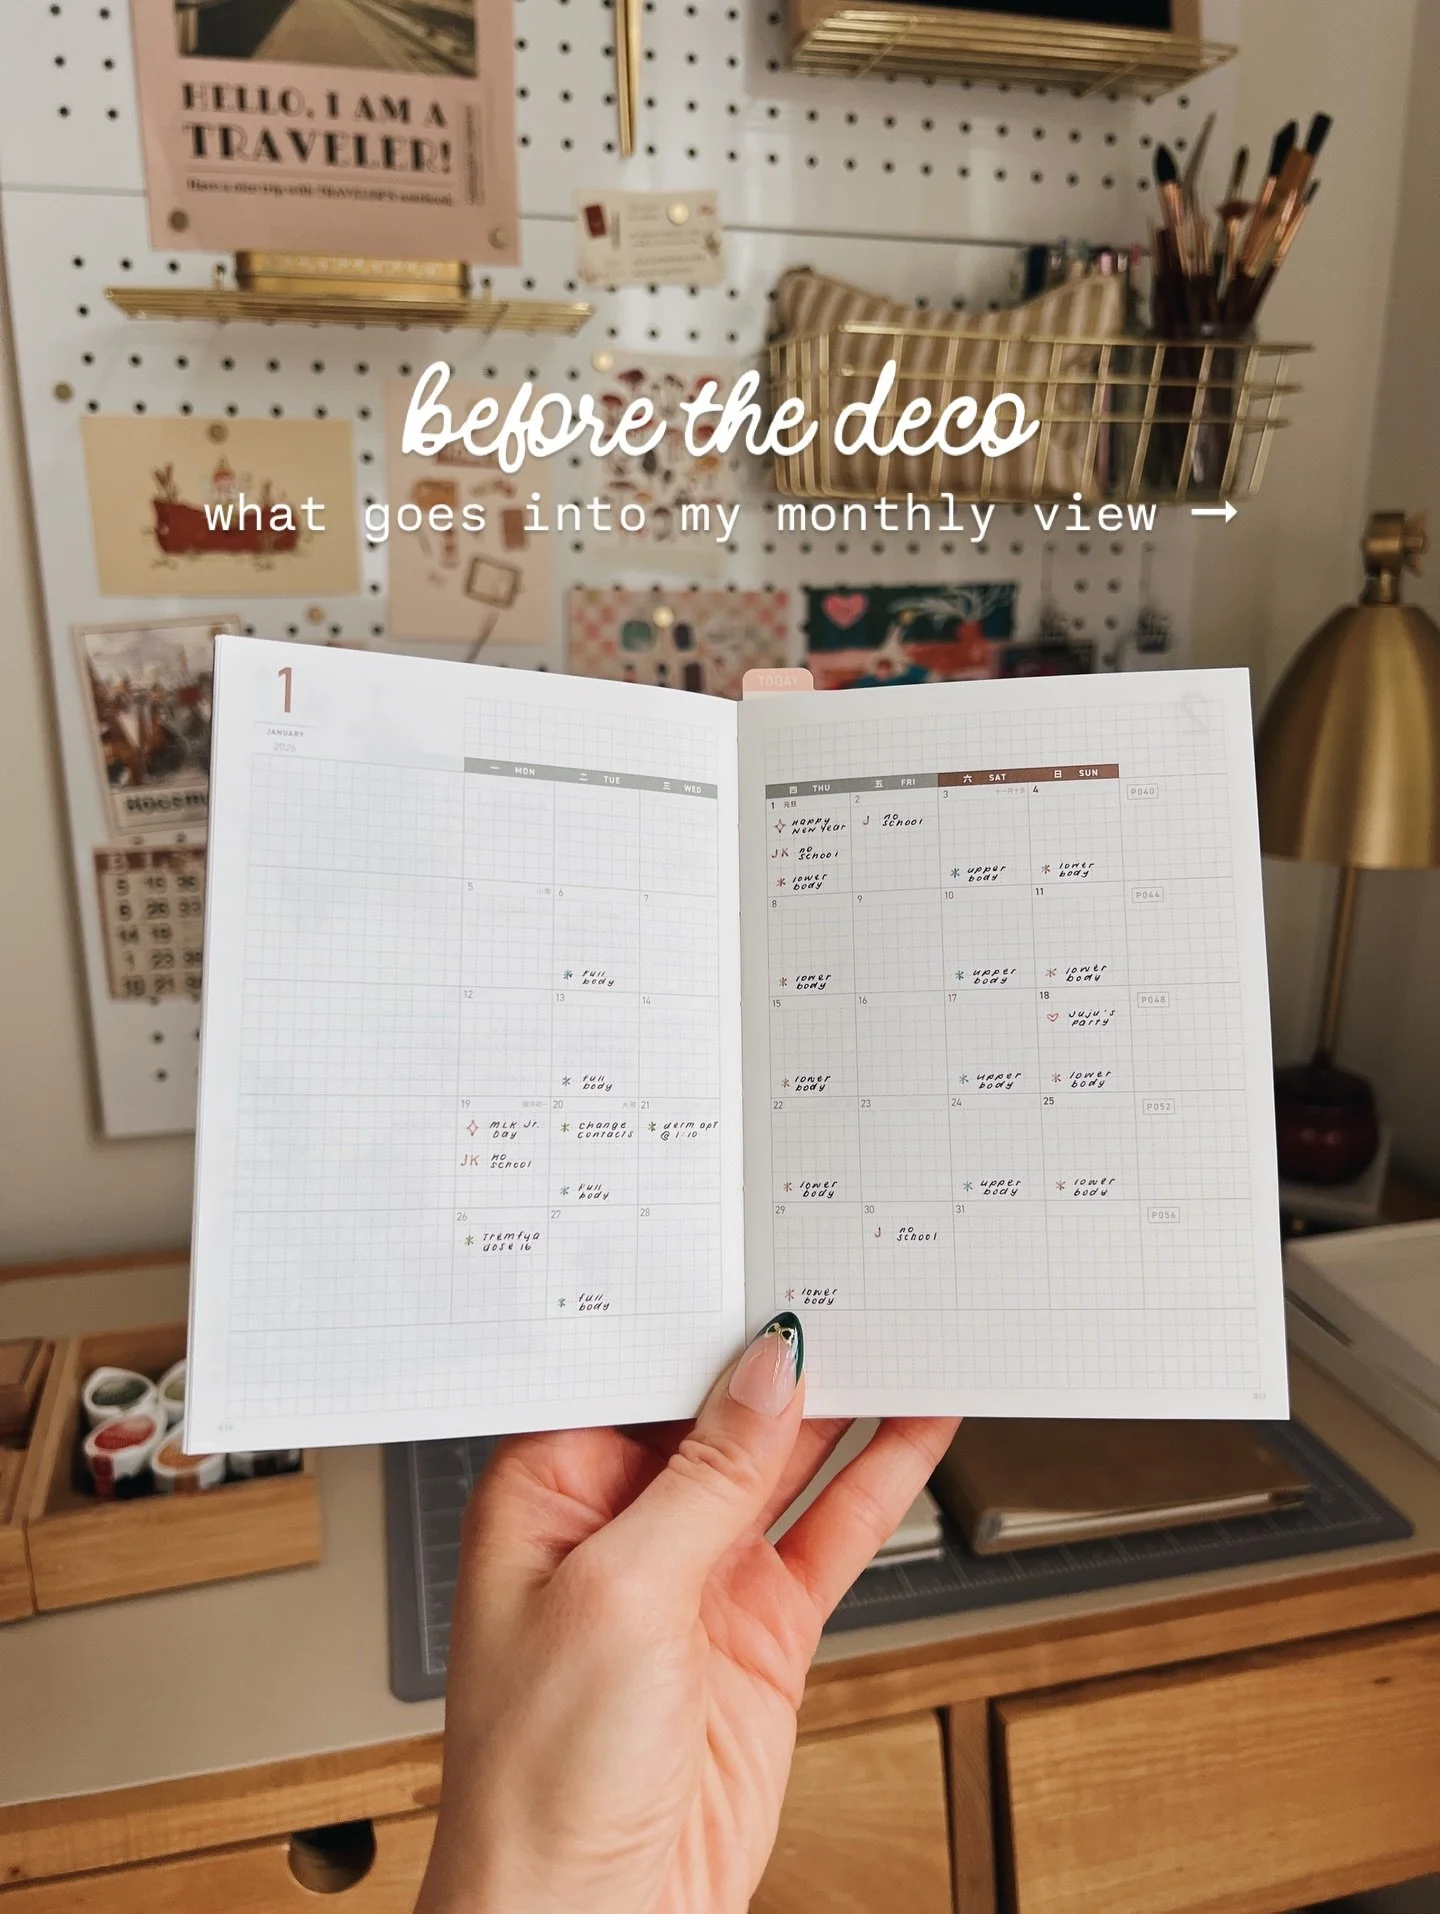 HELLO, I AM A
TRAVELER!
Have a nice trip with TRAVELER'S notebook.
before the deco
what goes into my monthly view →
TODAY
1
JANUARY
2026
一 MON 二 TUE 三 WED
四 THU 五 FRI 六 SAT 日 SUN
1 元旦 2 3 4 P040
Happy
New Year
J no
school
JK no
school
* lower
body
* upper
body
* lower
body
5 6 7 8 9 10 11 P044
* full
body
* lower
body
* upper
body
* lower
body
12 13 14 15 16 17 18 P048
Juju's
party
* full
body
* lower
body
* upper
body
* lower
body
19 20 21 22 23 24 25 P052
MLK Jr.
Day
* change
contacts
* derm apt
@ 1:10
JK no
school
* full
body
* lower
body
* upper
body
* lower
body
26 27 28 29 30 31 P056
* Tremfya
dose 16
J no
school
* full
body
* lower
body